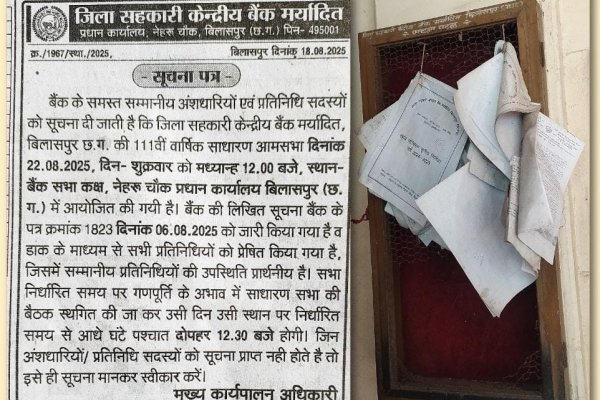 जिला सहकारी केन्द्रीय बैंक मर्यादित
प्रधान कार्यालय, नेहरू चौक, बिलासपुर (छ.ग.) पिन- 495001
क्र./1967/स्था./2025,
बिलासपुर दिनांक 18.08.2025
सूचना पत्र
बैंक के समस्त सम्मानीय अंशधारियों एवं प्रतिनिधि सदस्यों
को सूचना दी जाती है कि जिला सहकारी केन्द्रीय बैंक मर्यादित,
बिलासपुर छ.ग. की 111वॉं वार्षिक साधारण आमसभा दिनांक
22.08.2025, दिन- शुक्रवार को मध्यान्ह 12.00 बजे, स्थान-
बैंक सभा कक्ष, नेहरू चौक प्रधान कार्यालय बिलासपुर (छ.
ग.) में आयोजित की गयी है। बैंक की लिखित सूचना बैंक के
पत्र क्रमांक 1823 दिनांक 06.08.2025 को जारी किया गया है व
डाक के माध्यम से सभी प्रतिनिधियों को प्रेषित किया गया है,
जिसमें सम्मानीय प्रतिनिधियों की उपस्थिति प्रार्थनीय है। सभा
निर्धारित समय पर गणपूर्ति के अभाव में साधारण सभा की
बैठक स्थगित की जा कर उसी दिन उसी स्थान पर निर्धारित
समय से आधे घंटे पश्चात दोपहर 12.30 बजे होगी। जिन
अंशधारियों/ प्रतिनिधि सदस्यों को सूचना प्राप्त नही होते है तो
इसे ही सूचना मानकर स्वीकार करें।
मुख्य कार्यपालन अधिकारी